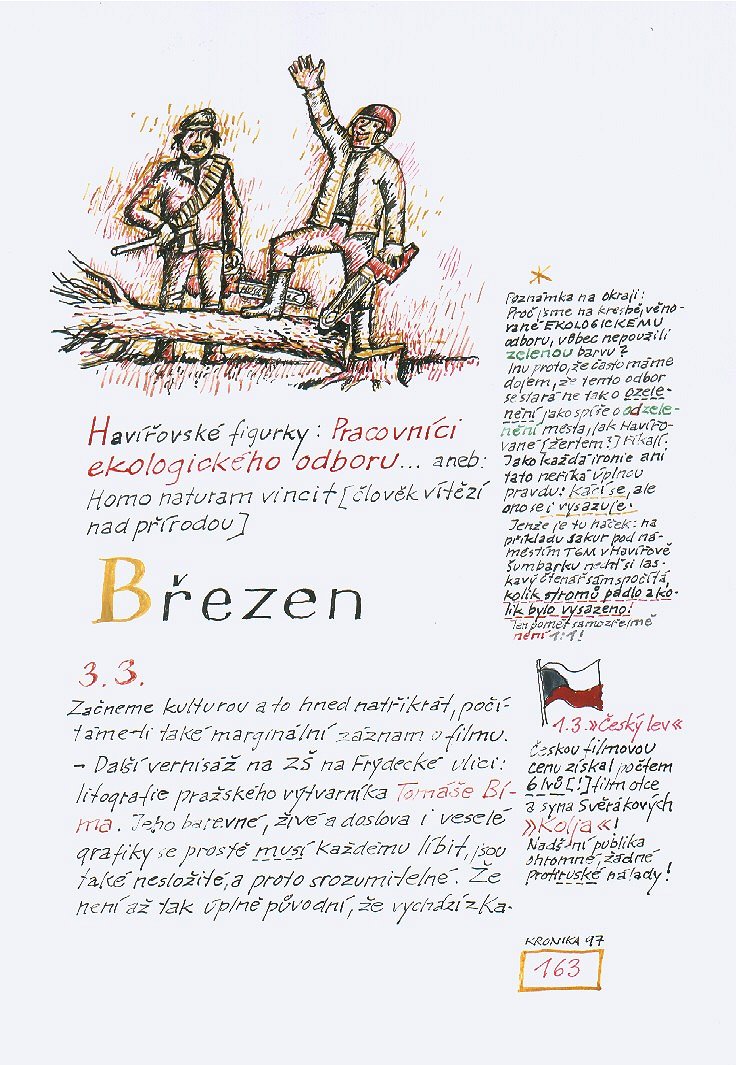 Havířovské figurky: Pracovníci
ekologického odboru... aneb:
Homo naturam vincit [člověk vítězí
nad přírodou]
Březen
3.3.
Začneme kulturou a to hned natřikrát, počí-
táme-li také marginální záznam o filmu.
- Další vernisáž na ZŠ na Frýdecké ulici:
litografie pražského výtvarníka Tomáše Bí-
ma. Jeho barevné, živé a doslova i veselé
grafiky se prostě musí každému líbit, jsou
také nesložité, a proto srozumitelné. Že
není až tak úplně původní, že vychází z Ka-
*
Poznámka na okraji:
Proč jsme na kresbě, věno-
vané EKOLOGICKÉMU
odboru, vůbec nepoužili
zelenou barvu?
Inu proto, že často máme
dojem, že tento odbor
se stará ne tak o ozele-
nění jako spíše o odzele-
nění města, jak Havířo-
vané [žertem?] říkají.
Jako každá ironie ani
tato neříká úplnou
pravdu: kácí se, ale
ono se i vysazuje.
Jenže je tu háček: na
příkladu sakur pod ná-
městím TGM v Havířově
Šumbarku nechť si las-
kavý čtenář sám spočítá,
kolik stromů padlo a ko-
lik bylo vysazeno!
Ten poměr samozřejmě
není 1:1!
1.3. »Český lev«
Českou filmovou
cenu získal počtem
6 lvů [!] film otce
a syna Svěrákových
»Kolja«!
Nadšení publika
ohromné, žádné
protiruské nálady!
KRONIKA 97
163